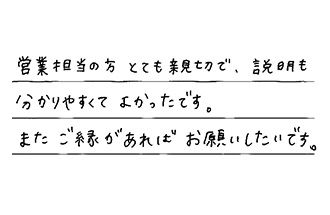 営業担当の方 とても親切で、説明も
分かりやすくて よかったです。
また ご縁があれば お願いしたいです。